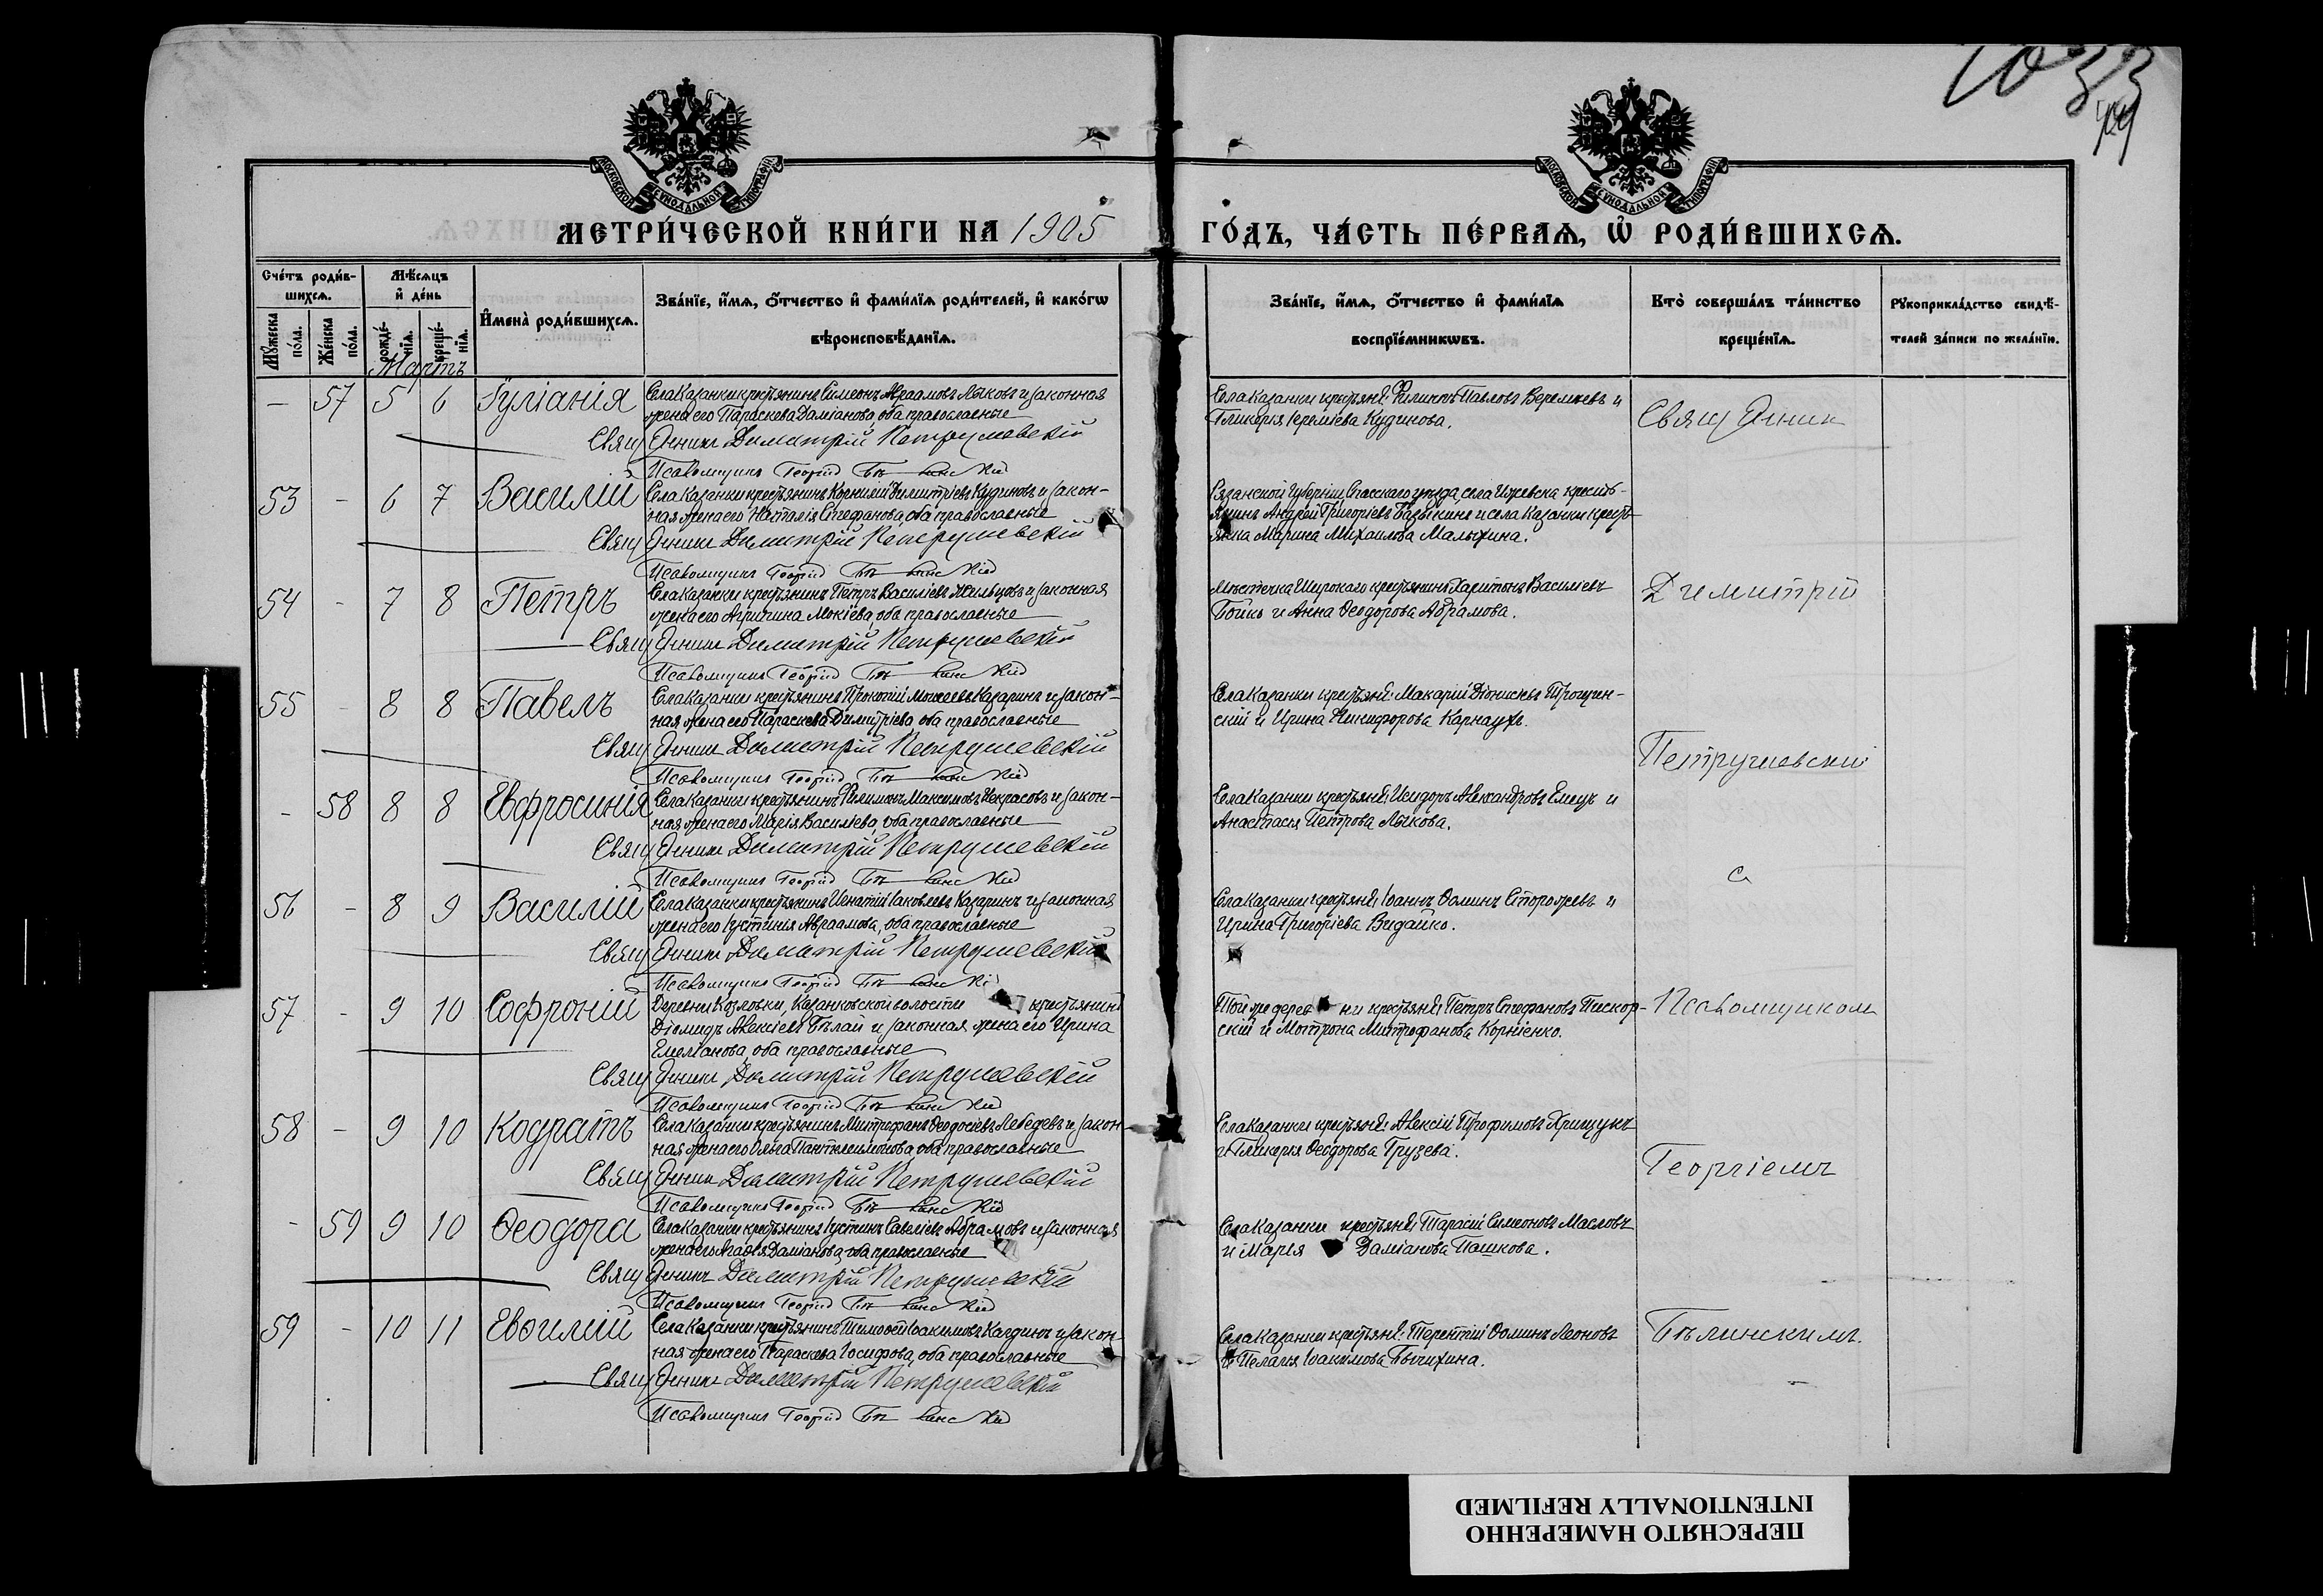 1033
МОСКОВСКОЙ СѴНОДАЛЬНОЙ ТИПОГРАФІИ
МОСКОВСКОЙ СѴНОДАЛЬНОЙ ТИПОГРАФІИ
МЕТРИ́ЧЕСКОЙ КНИ́ГИ НА 1905
ГО́ДЪ, ЧА́СТЬ ПЕ́РВАѦ, Ѡ҆ РОДИ́ВШИХСѦ.
Сче́тъ роди́вшихсѧ.
Мꙋ́жеска по́ла.
Же́нска по́ла.
Мѣ́сѧцъ и҆ де́нь
рожде́нїѧ.
креще́нїѧ.
И҆мена̀ роди́вшихсѧ.
Зва́нїе, и҆́мѧ, ѻ҆́тчество и҆ фами́лїѧ роди́телей, и҆ како́гѡ
вѣроисповѣ́данїѧ.
Зва́нїе, и҆́мѧ, ѻ҆́тчество и҆ фами́лїѧ
воспрїе́мникѡвъ.
Кто̀ соверша́лъ та́инство
креще́нїѧ.
Рꙋкоприкла́дство свидѣ́-
телей за́писи по жела́нїю.
Мартъ
— 57 5 6 Іуліанія
Села Казанки крестьянинъ Симеонъ Авраамовъ Лыковъ и законная
жена его Параскева Даміанова, оба православные
Священникъ Димитрій Петрушевскій
Псаломщикъ Георгій Бѣлинскій
Села Казанки крестьяне: Филиппъ Павловъ Веремѣевъ и
Гликерія Іереміева Кудинова.
Священник
53 - 6 7 Василій
Села Казанки крестьянинъ Корнилій Димитріевъ Кудиновъ и закон-
ная жена его Наталія Стефанова, оба православные
Священникъ Димитрій Петрушевскій
Псаломщикъ Георгій Бѣлинскій
Рязанской губерніи, Спасскаго уезда, села Ижевска кресть-
янинъ Андрей Григорьевъ Базыкинъ и села Казанки кресть-
янка Марина Михаилова Малыхина.
54 - 7 8 Петръ
Села Казанки крестьянинъ Петръ Василіевъ Жильцовъ и законная
жена его Агрипина Мокіева, оба православные
Священникъ Димитрій Петрушевскій
Псаломщикъ Георгій Бѣлинскій
Мѣстечка Широкаго крестьянинъ Харитонъ Василіевъ
Бойко и Анна Ѳеодорова Абрамова.
Димитрій
55 - 8 8 Павелъ
Села Казанки крестьянинъ Прокопій Моисеевъ Казаринъ и закон-
ная жена его Параскева Димитріева, оба православные
Священникъ Димитрій Петрушевскій
Псаломщикъ Георгій Бѣлинскій
Села Казанки крестьяне: Макарій Діонисіевъ
скій и Ирина Никифорова Карнаухъ.
Петрушевскій
- 58 8 8 Евфросинія
Села Казанки крестьянинъ Филимонъ Максимовъ Некрасовъ и закон-
ная жена его Марія Василіева, оба православные
Священникъ Димитрій Петрушевскій
Псаломщикъ Георгій Бѣлинскій
Села Казанки крестьяне: Исидоръ Александровъ Емецъ и
Анастасія Петрова Лыкова.
с
56 - 8 9 Василій
Села Казанки крестьянинъ Игнатій Іаковлевъ Казаринъ и законная
жена его Іустинія Авраамова, оба православные
Священникъ Димитрій Петрушевскій
Псаломщикъ Георгій Бѣлинскій
Села Казанки крестьяне: Іоаннъ Ѳоминъ Сторожевъ и
Ирина Григоріева Видайко.
57 - 9 10 Софроній
Деревни Козловки, Казанковской волости крестьянинъ
Діомидъ Алексіевъ Бѣлай и законная жена его Ирина
Емеліанова, оба православные
Священникъ Димитрій Петрушевскій
Псаломщикъ Георгій Бѣлинскій
Той же деревни крестьяне: Петръ Стефановъ Пискор-
скій и Мотрона Митрофанова Корніенко.
Псаломщиком
58 - 9 10 Кодратъ
Села Казанки крестьянинъ Митрофанъ Ѳеодосіевъ Лебедевъ и закон-
ная жена его Ольга Пантелеимонова, оба православные
Священникъ Димитрій Петрушевскій
Псаломщикъ Георгій Бѣлинскій
Села Казанки крестьяне: Алексій Трофимовъ Хрищукъ
и Гликерія Ѳеодорова Грузева.
Георгіемъ
- 59 9 10 Ѳеодора
Села Казанки крестьянинъ Іустинъ Савеліевъ Абрамовъ и законная
жена его Агаѳія Даміанова, оба православные
Священникъ Димитрій Петрушевскій
Псаломщикъ Георгій Бѣлинскій
Села Казанки крестьяне: Тарасій Симеоновъ Масловъ
и Марія Даміанова Пашкова.
59 - 10 11 Евѳимій
Села Казанки крестьянинъ Тимоѳей Іоакимовъ Калдинъ и закон-
ная жена его Параскева Іосифова, оба православные
Священникъ Димитрій Петрушевскій
Псаломщикъ Георгій Бѣлинскій
Села Казанки крестьяне: Терентій Ѳоминъ Леоновъ
и Пелагія Іоакимова Бычихина.
Бѣлинскимъ.
ПЕРЕСНЯТО НАМЕРЕННО
INTENTIONALLY REFILMED